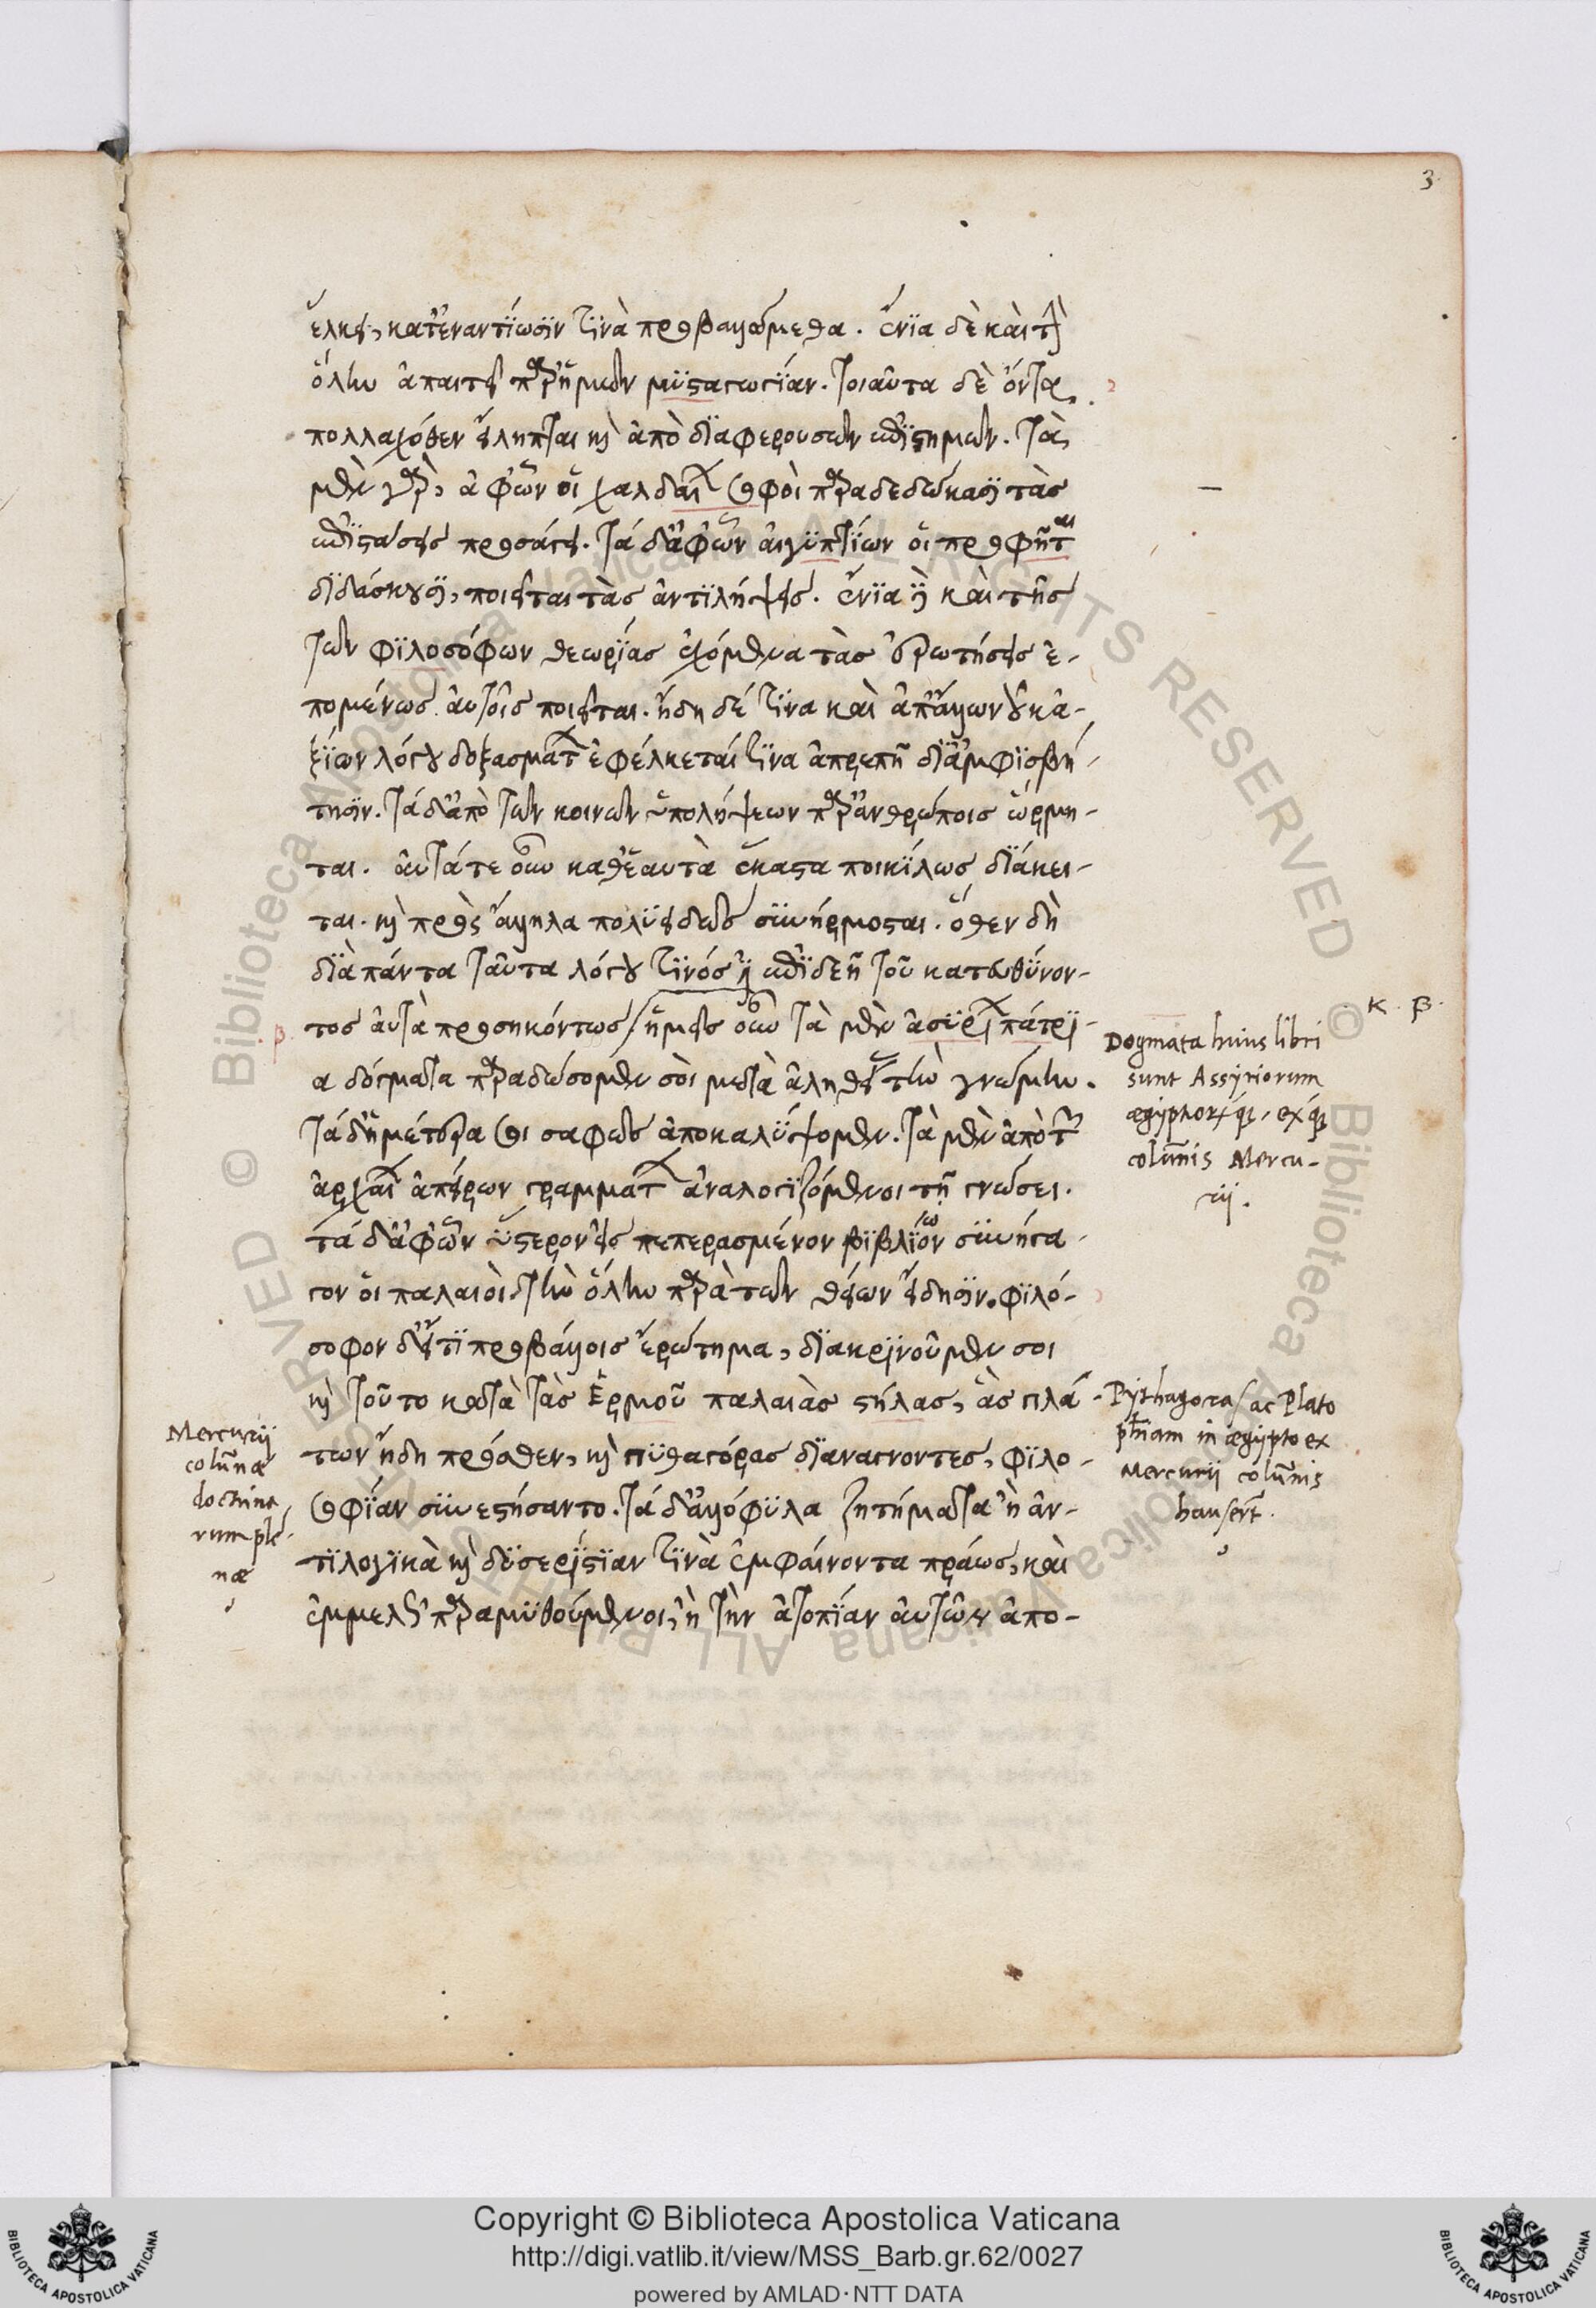 3
ἕλκει, κατ' ἐναντίωσιν τινὰ προβαλλόμεθα. ἔνια δὲ καὶ τὴν
ὅλην ἀπαιτεῖ παρ' ἡμῶν μυσταγωγίαν. τοιαῦτα δὲ ὄντα,
πολλαχόθεν εἴληπται καὶ ἀπὸ διαφερουσῶν ἐπιστημῶν. τὰ
μὲν γὰρ, ἀφ' ὧν οἱ χαλδαίων σοφοὶ παραδεδώκασι τὰς
ἐπιστάσεις προσάγει. τά δ' ἀφ' ὧν αἰγυπτίων οἱ προφῆται
διδάσκουσι, ποιεῖται τὰς ἀντιλήψεις. ἔνια δὲ καὶ τῆς
τῶν φιλοσόφων θεωρίας ἐχόμενα τὰς ἐρωτήσεις ἑ-
πομένως αὐτοῖς ποιεῖται. ἤδη δέ τινα καὶ ἀπ' ἄλλων οὐκ ἀ-
ξίων λόγου δοξασμάτων ἐφέλκεταί τινα ἀπρεπῆ διαμφισβή-
τησιν. τά δ' ἀπὸ τῶν κοινῶν ὑπολήψεων παρ' ἀνθρώποις ὥρμη-
ται. αὐτά τε οὖν καθ' ἑαυτὰ ἕκαστα ποικίλως διάκει-
ται. καὶ πρὸς ἄλληλα πολυειδῶς συνήρμοσται. ὅθεν δὴ
διὰ πάντα ταῦτα λόγου τινός ἐστιν ἐπιδεῆ τοῦ κατευθύνον-
τος αὐτὰ προσηκόντως / ἡμεῖς οὖν τὰ μὲν ἀσσυρίων πάτρι-
α δόγματα παραδώσομέν σοι μετὰ ἀληθείας τὴν γνώμην.
τά δ' ἡμέτερα σοι σαφῶς ἀποκαλύψομεν. τὰ μὲν ἀπὸ τῶν
ἀρχαίων ἀπείρων γραμμάτων ἀναλογιζόμενοι τῇ γνώσει.
τά δ' ἀφ' ὧν ὕστερον εἰς πεπερασμένον βιβλίον συνήγα-
γον οἱ παλαιοὶ τὴν ὅλην παρὰ τῶν θείων εἴδησιν. φιλό-
σοφον δ' εἴ τι προβάλλοις ἐρώτημα, διακρινοῦμέν σοι
καὶ τοῦτο κατὰ τὰς ἑρμοῦ παλαιὰς στήλας, ἃς πλά-
των ἤδη πρόσθεν, καὶ πυθαγόρας διαναγνόντες, φιλο-
σοφίαν συνεστήσαντο. τά δ' ἀλλόφυλα ζητήματα ἢ ἀν-
τιλογικὰ καὶ δυσεριστίαν τινὰ ἐμφαίνοντα πράως, καὶ
ἐμμελῶς παραμυθούμενοι, ἢ τὴν ἀτοπίαν αὐτῶν ἀπο-
κ. β.
Dogmata huius libri
sunt Assyriorum
columnis Mercu-
rij.
Pythagoras ac Plato
phiam in ægypto ex
Mercurij colum̄nis
hausert.
Mercurij
colum̄næ
doctrina
rum ple-
næ
© Biblioteca Apostolica Vaticana ALL RIGHTS RESERVED
BIBLIOTECA APOSTOLICA VATICANA
Copyright © Biblioteca Apostolica Vaticana
http://digi.vatlib.it/view/MSS_Barb.gr.62/0027
powered by AMLAD·NTT DATA
BIBLIOTECA APOSTOLICA VATICANA